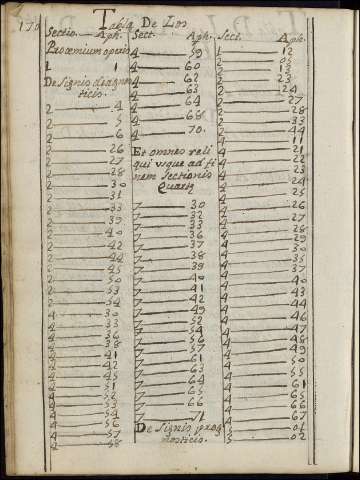 170
Tabla De Los
Sectio. Aph.
Proœmium operis
1 1
De Signis diagnos
ticis.
2 4
2 5
2 6
2 26
2 27
2 28
2 30
2 31
2 33
2 39
2 40
2 42
2 44
2 45
2 50
2 53
2 54
4 30
4 33
4 36
4 38
4 41
4 42
4 45
4 51
4 52
4 53
4 54
4 56
4 57
4 58
Sect. Aph.
4 59
4 60
4 62
4 63
4 64
4 68
4 70.
Et omnes reli
qui vsque ad fi
nem Sectionis
Quartæ
7 30
7 32
7 33
7 36
7 37
7 38
7 39
7 40
7 41
7 42
7 49
7 52
7 54
7 56
7 57
7 61
7 63
7 64
7 65
7 66
7 71
De Signis prog
nosticis.
Sect. Aph.
1 12
2 02
2 13
2 23
2 24
2 27
2 28
2 33
2 44
4 11
4 21
4 22
4 23
4 24
4 25
4 26
4 27
4 28
4 29
4 30
4 35
4 37
4 40
4 43
4 44
4 47
4 48
4 49
4 50
4 55
4 61
4 65
4 66
4 67
5 01
5 02